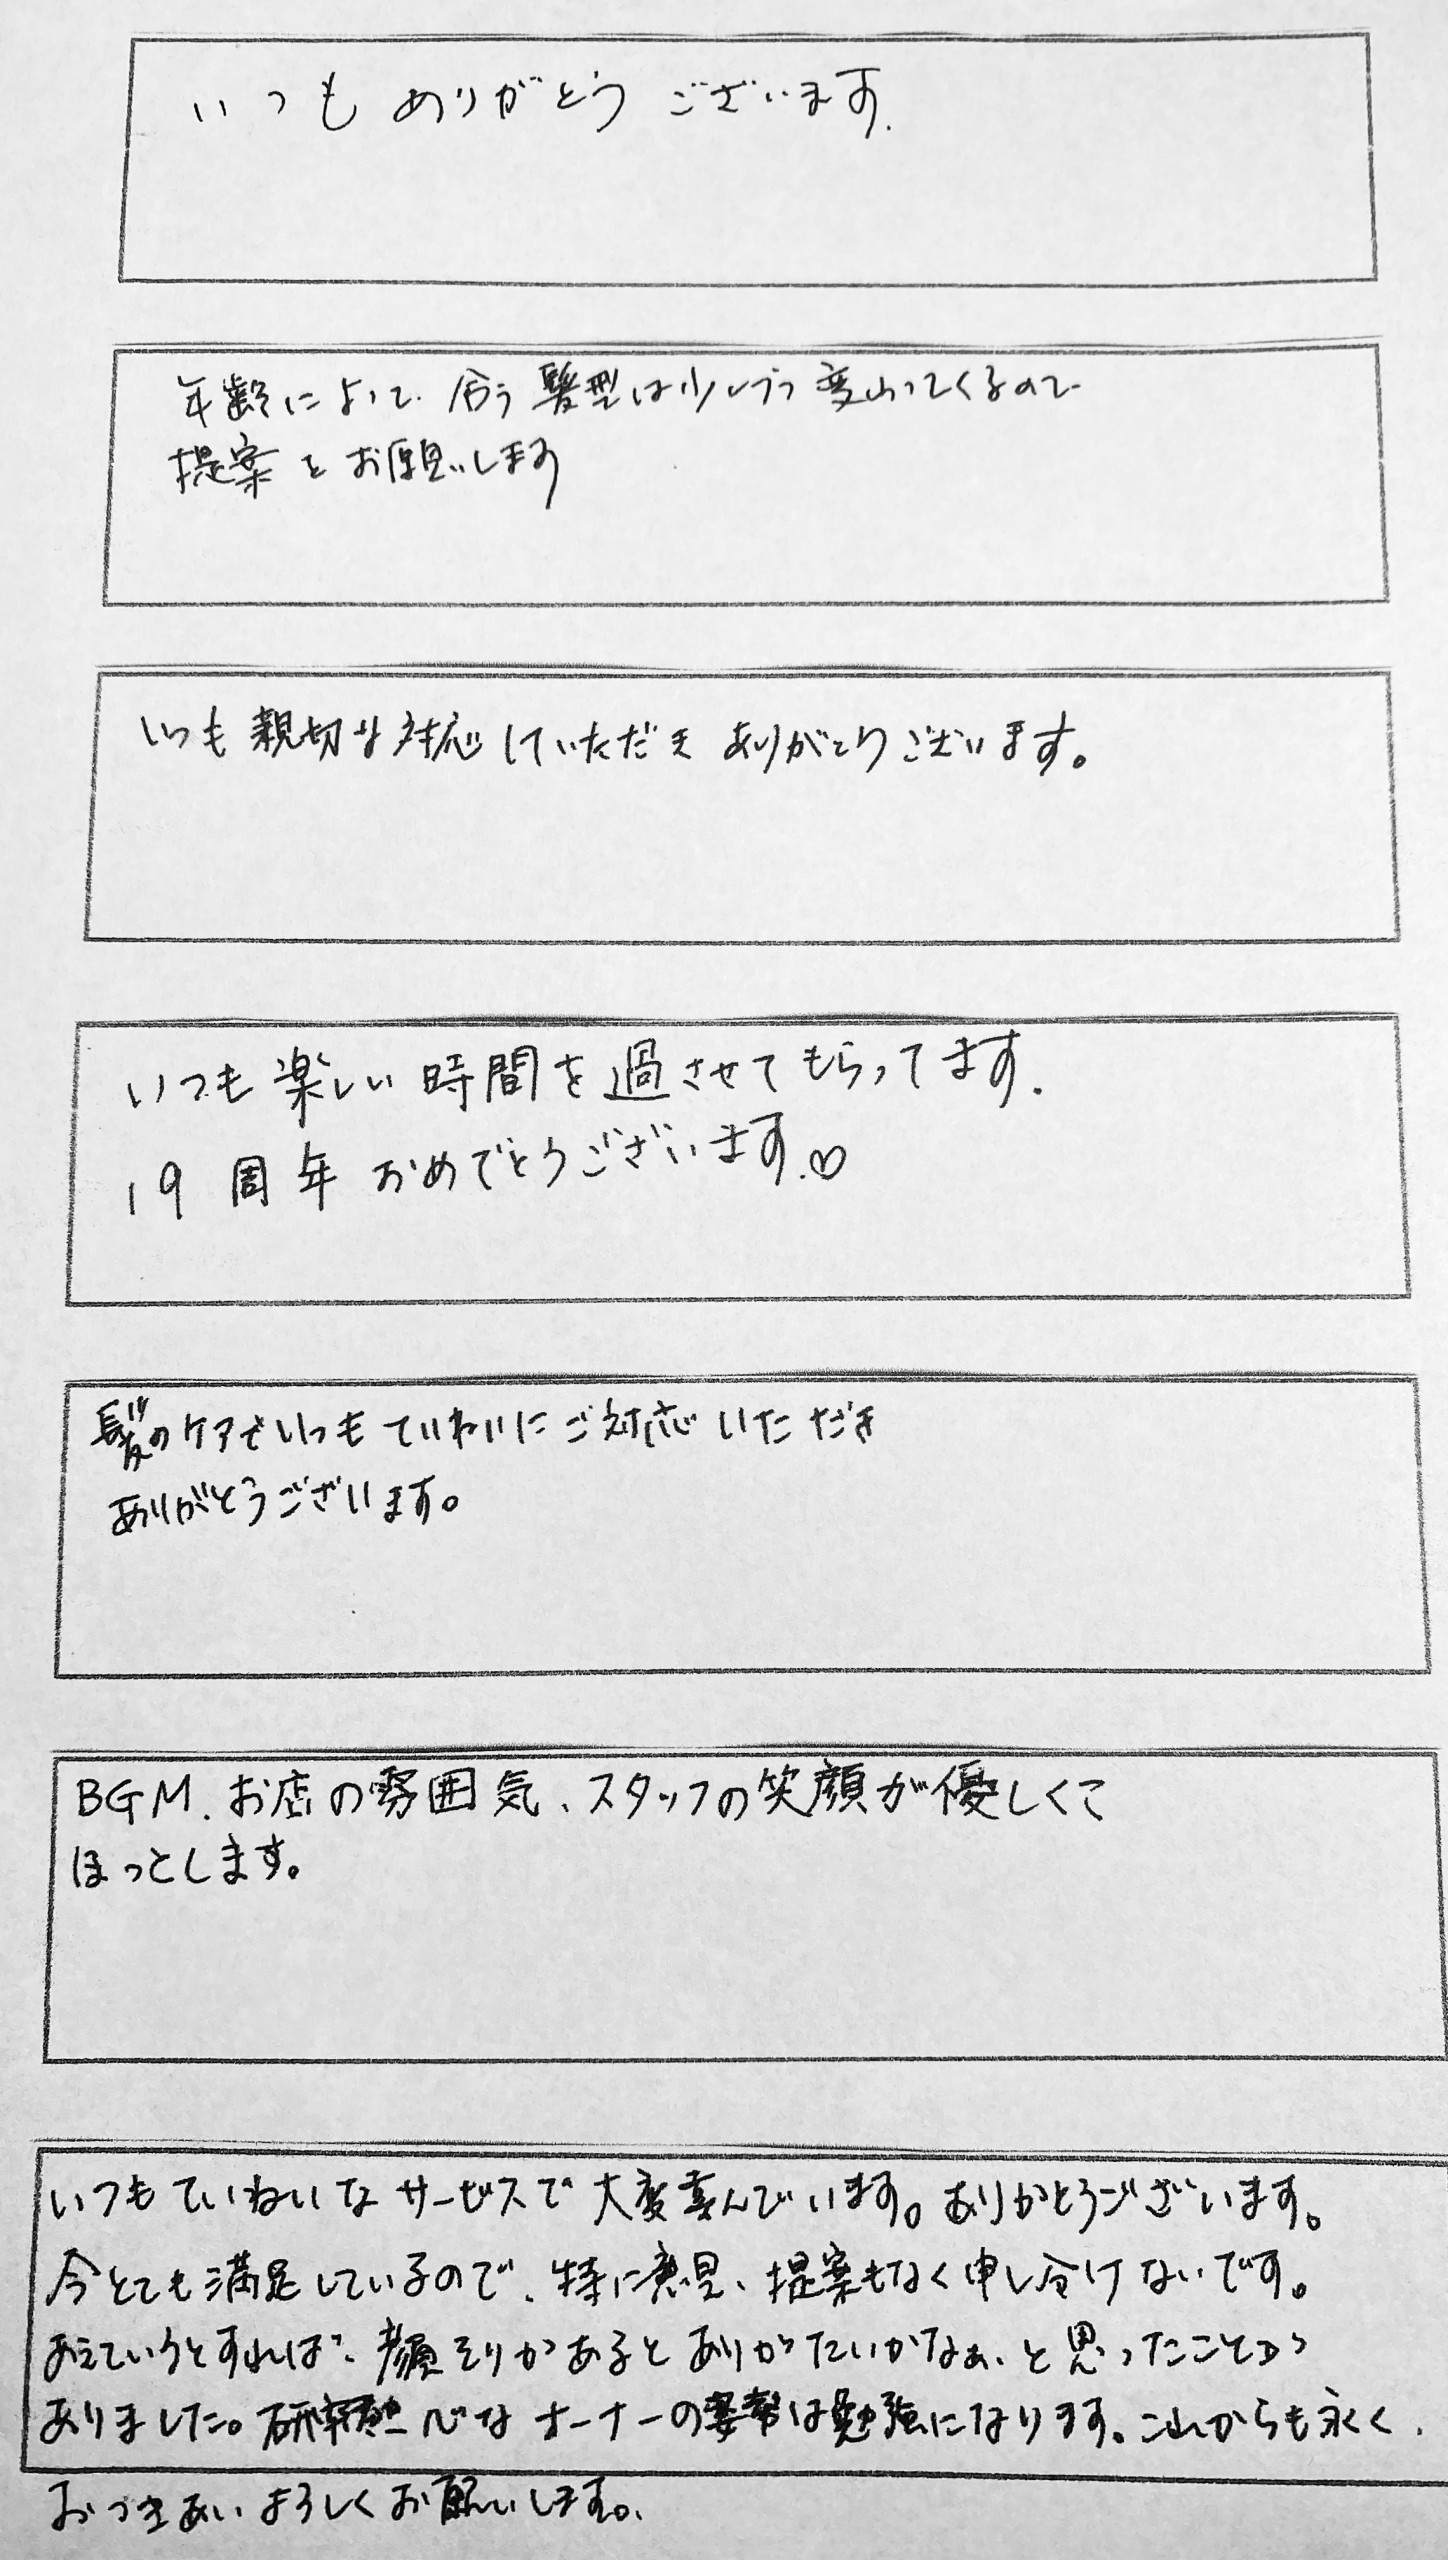 いつもありがとうございます.
年齢によって、合う髪型は少しづつ変わってくるので
提案をお願いします
いつも親切な対応していただきありがとうございます。
いつも楽しい時間を過させてもらってます.
19周年おめでとうございます.♡
髪のケアでいつもていねいにご対応いただき
ありがとうございます。
BGM、お店の雰囲気、スタッフの笑顔が優しくて
ほっとします。
いつもていねいなサービスで大変喜んでいます。ありがとうございます。
今とても満足しているので、特に意見、提案もなく申し分けないです。
あえていうとすれば、顔そりがあるとありがたいかなぁ、と思ったことが
ありました。研究熱心なオーナーの姿勢は勉強になります。これからも永く、
おつきあいよろしくお願いします。